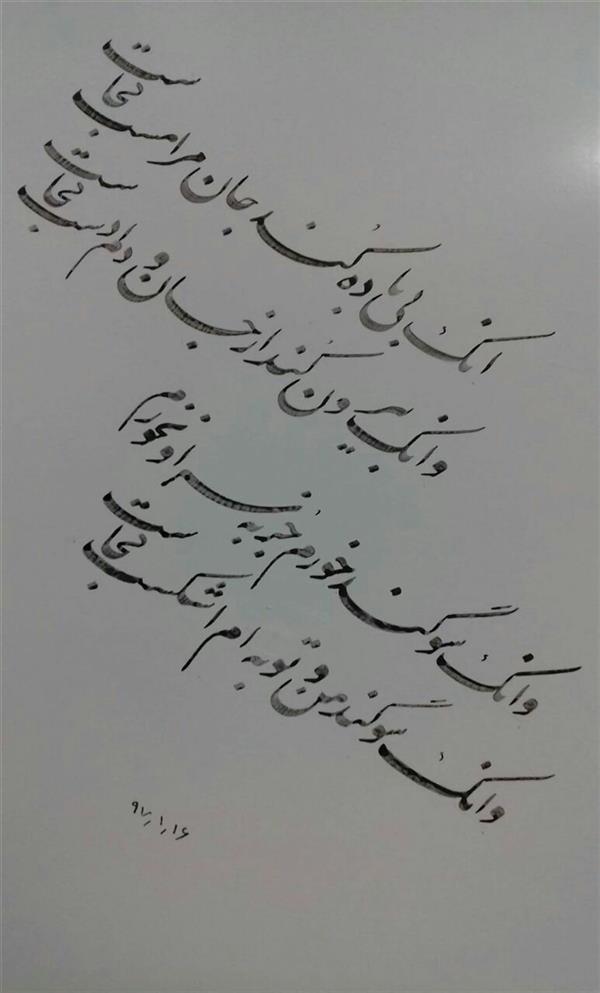 آنک بی باده کند جان مرا مست کجاست
وانک بیرون کند از جان و دلم دست کجاست
وانک سوگند خورم جز به سر او نخورم
وانک سوگند من و توبه ام اشکست کجاست
۹۷٫۱٫۱۶